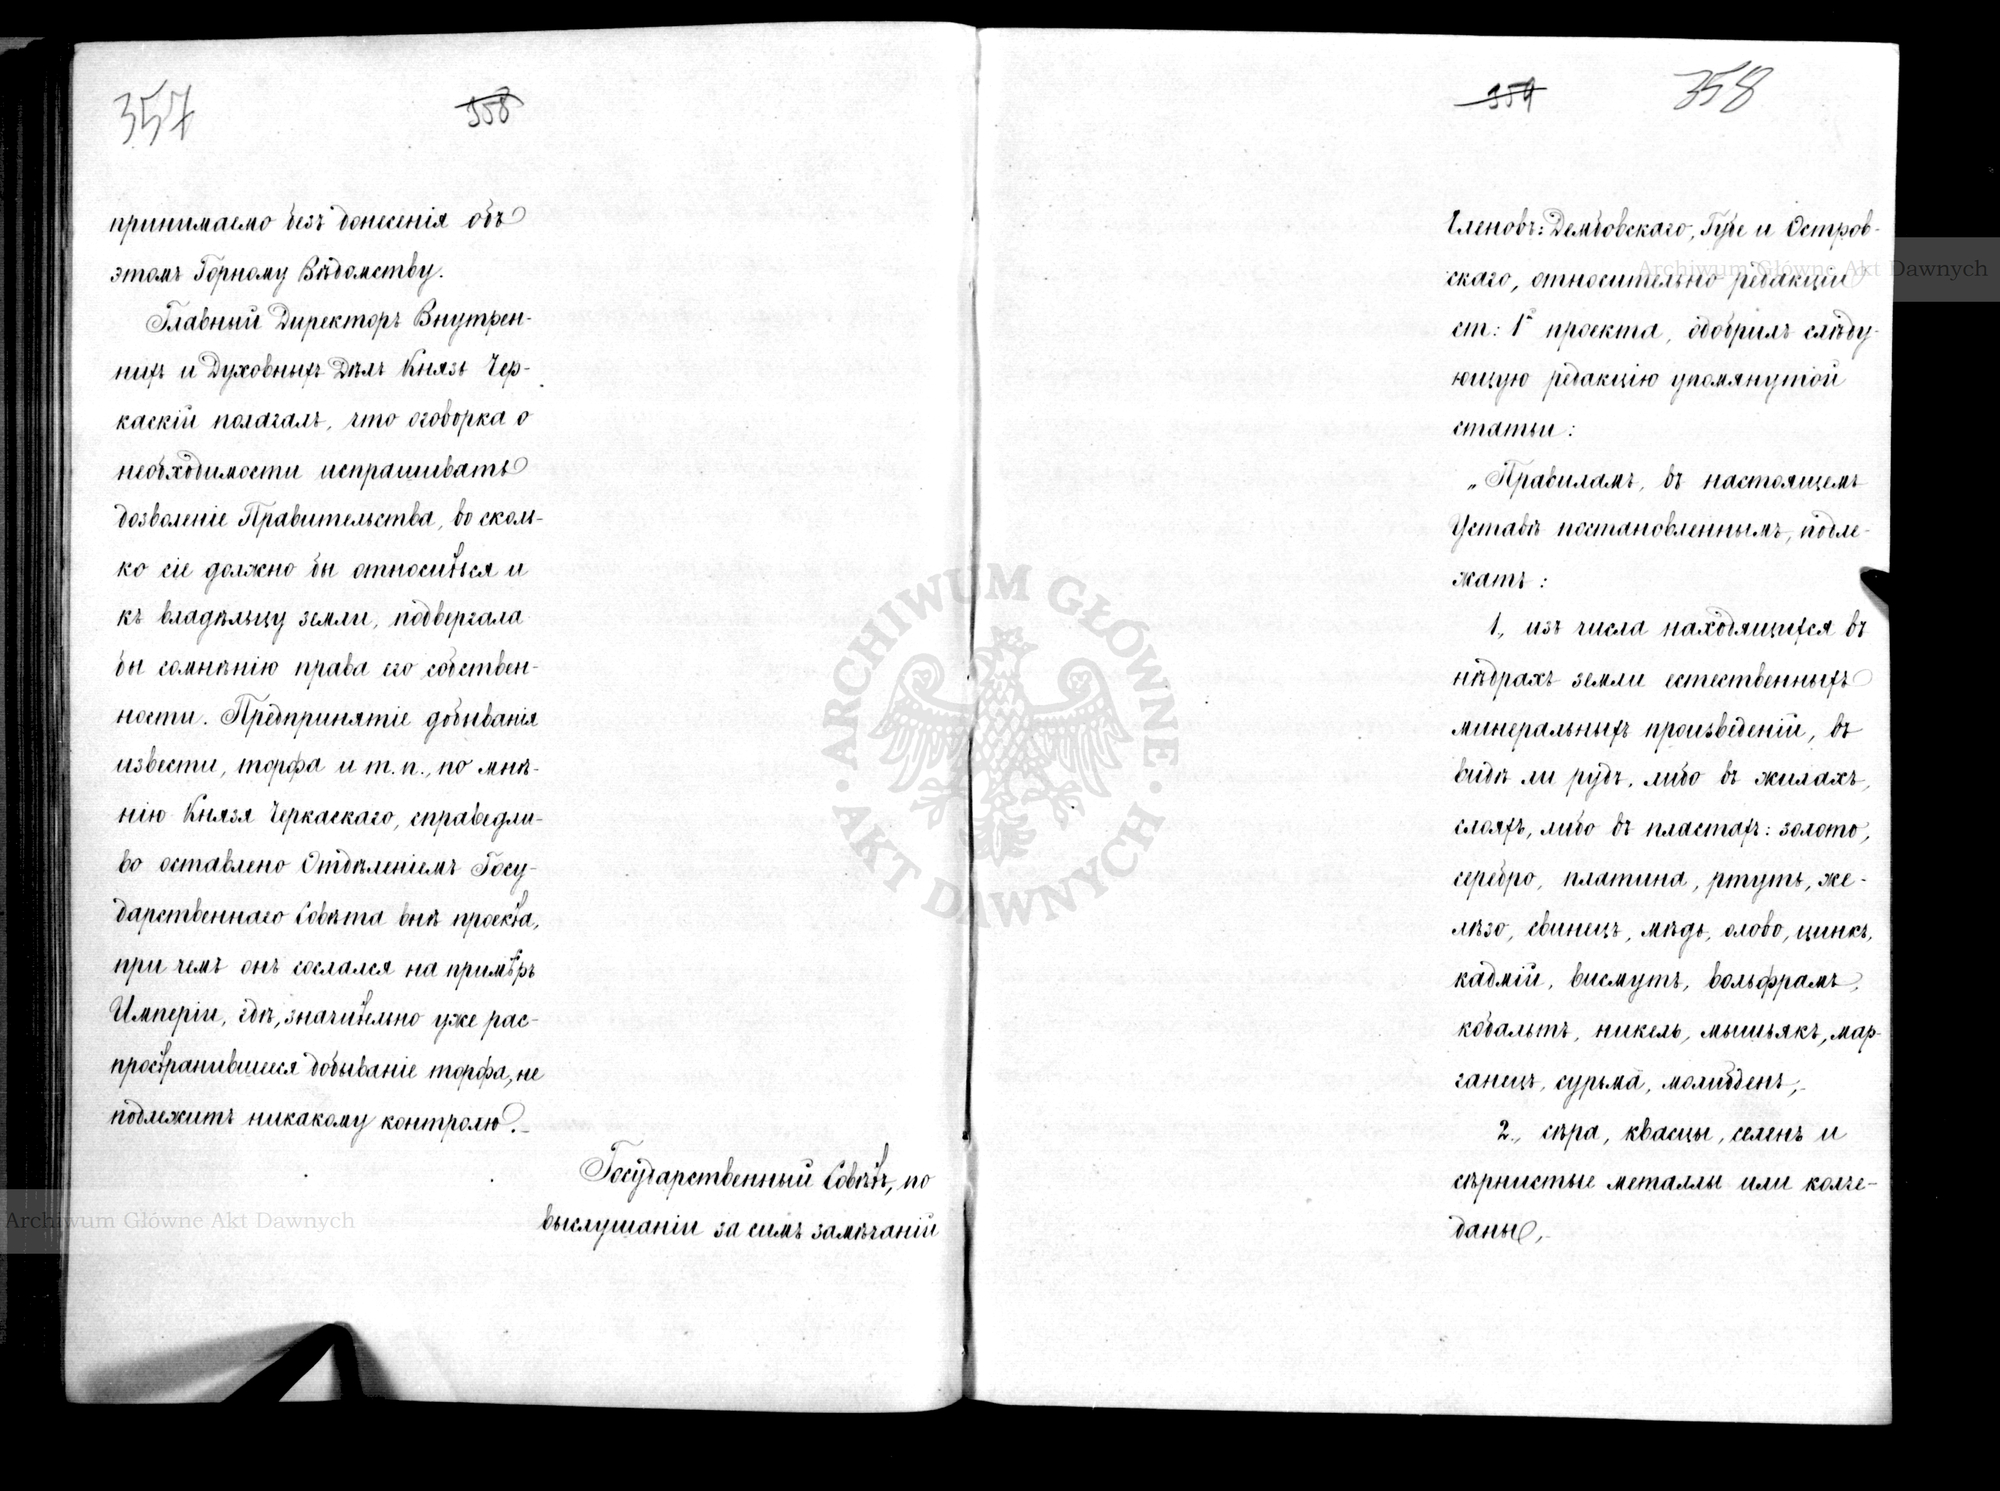 357
358
принимаемо безъ донесенія объ
этомъ Горному Вѣдомству.
Главный Директоръ Внутрен-
нихъ и Духовныхъ Дѣлъ Князь Чер-
каскій полагалъ, что оговорка о
необходимости испрашивать
дозволеніе Правительства, во сколь-
ко сіе должно бы относиться и
къ владѣльцу земли, подвергала
бы сомнѣнію права его собствен-
ности. Предпринятіе добыванія
извести, торфа и т. п., по мнѣ-
нію Князя Черкаскаго, справедли-
во оставлено Отдѣленіемъ Госу-
дарственнаго Совѣта внѣ проекта,
при чемъ онъ сослался на примѣръ
Имперіи, гдѣ, значительно уже рас-
пространившееся добываніе торфа, не
подлежитъ никакому контролю.
Государственный Совѣтъ, по
выслушаніи за симъ замѣчаній
359
358
Членовъ: Дембовскаго, Губе и Остров-
скаго, относительно редакціи
ст: 1й проекта, одобрилъ слѣду-
ющую редакцію упомянутой
статьи:
„Правиламъ, въ настоящемъ
Уставѣ постановленнымъ, подле-
жатъ:
1., изъ числа находящихся въ
нѣдрахъ земли естественныхъ
минеральныхъ произведеній, въ
видѣ ли рудъ, либо въ жилахъ,
слояхъ, либо въ пластахъ: золото,
серебро, платина, ртуть, же-
лѣзо, свинецъ, мѣдь, олово, цинкъ,
кадмій, висмутъ, вольфрамъ,
кобальтъ, никель, мышьякъ, мар-
ганецъ, сурьма, молибденъ,
2., сѣра, квасцы, селенъ и
сѣрнистые металлы или колче-
даны,
Archiwum Główne Akt Dawnych
ARCHIWUM GŁÓWNE AKT DAWNYCH
Archiwum Główne Akt Dawnych